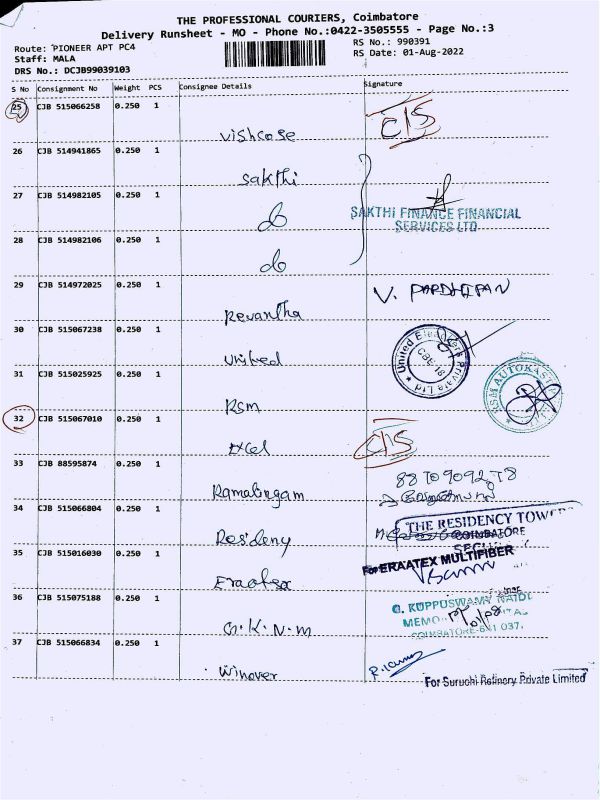 THE PROFESSIONAL COURIERS, Coimbatore
Delivery Runsheet - MO - Phone No.:0422-3505555 - Page No.:3
Route: PIONEER APT PC4
RS No.: 990391
Staff: MALA
RS Date: 01-Aug-2022
DRS No.: DCJB99039103
S No Consignment No Weight PCS Consignee Details Signature
25 CJB 515066258 0.250 1
Vishcose C/S
26 CJB 514941865 0.250 1
Sakthi
27 CJB 514982105 0.250 1
do SAKTHI FINANCE FINANCIAL
SERVICES LTD
28 CJB 514982106 0.250 1
do
29 CJB 514972025 0.250 1
Revantha V. PARDHIPAN
30 CJB 515067238 0.250 1
United United Private Ltd CBE-18
31 CJB 515025925 0.250 1
RSM RSM AUTOKAST
32 CJB 515067010 0.250 1
Excel C/S
33 CJB 88595874 0.250 1
Ramalingam
34 CJB 515066804 0.250 1
Resideny THE RESIDENCY TOWER
COIMBATORE
35 CJB 515016030 0.250 1
Eraatex For ERAATEX MULTIFIBER
36 CJB 515075188 0.250 1
G.K.N.M G. KUPPUSWAMY NAIDU
COIMBATORE-641 037.
37 CJB 515066834 0.250 1
Winover For Suruchi Refinery Private Limited